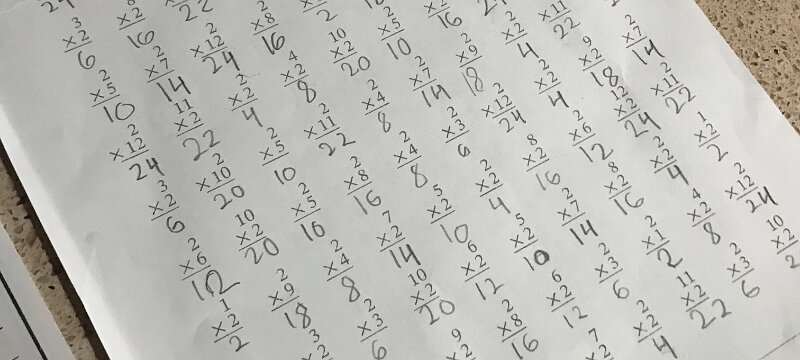 3 8
×2 ×2
6 16 22
2 2 2 2
×5 ×7 ×12 ×8
10 14 24 16 2
2 11 2 4 10 2
×12 ×2 ×2 ×2 ×2 ×5 ×2
24 22 4 8 20 10 16
3 2 2 2 2 2 2 2 11
×2 ×10 ×5 ×11 ×4 ×7 ×9 ×2 ×2
6 20 10 22 8 14 18 4 22
2 10 2 2 2 2 2 2 9 2
×6 ×2 ×5 ×8 ×4 ×3 ×12 ×2 ×2 ×7
12 20 16 16 8 6 24 4 18 14
1 2 2 7 5 2 8 2 12 2
×2 ×9 ×4 ×2 ×2 ×2 ×2 ×6 ×2 ×11
2 18 8 14 10 4 16 12 24 22
3 2 10 6 5 2 8 2 1
×2 ×3 ×2 ×2 ×2 ×7 ×2 ×2 ×2
6 20 12 10 14 16 4 2
9 2 6 2 2 4 2
×2 ×8 ×2 ×3 ×1 ×2 ×12
16 12 6 2 8 24
7 2 11 2 10
×2 ×2 ×2 ×3 ×2
4 22 6 2